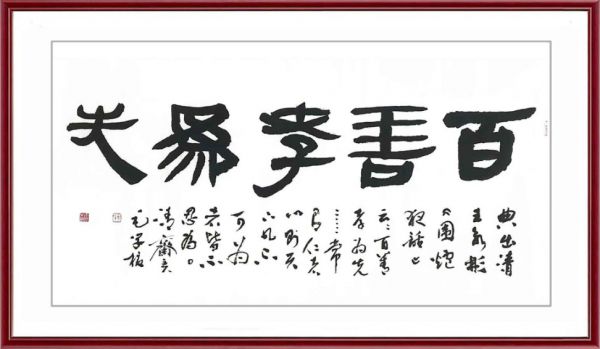 百善孝為先
典出清
王永彬
《圍炉
夜話》
云：百善
孝为先
……常
存仁孝
心则天
下凡不
可为
者皆不
忍为。